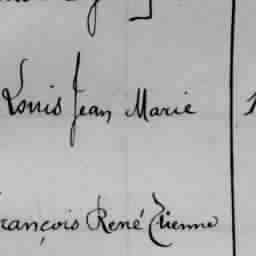 Louis Jean Marie
François René Etienne